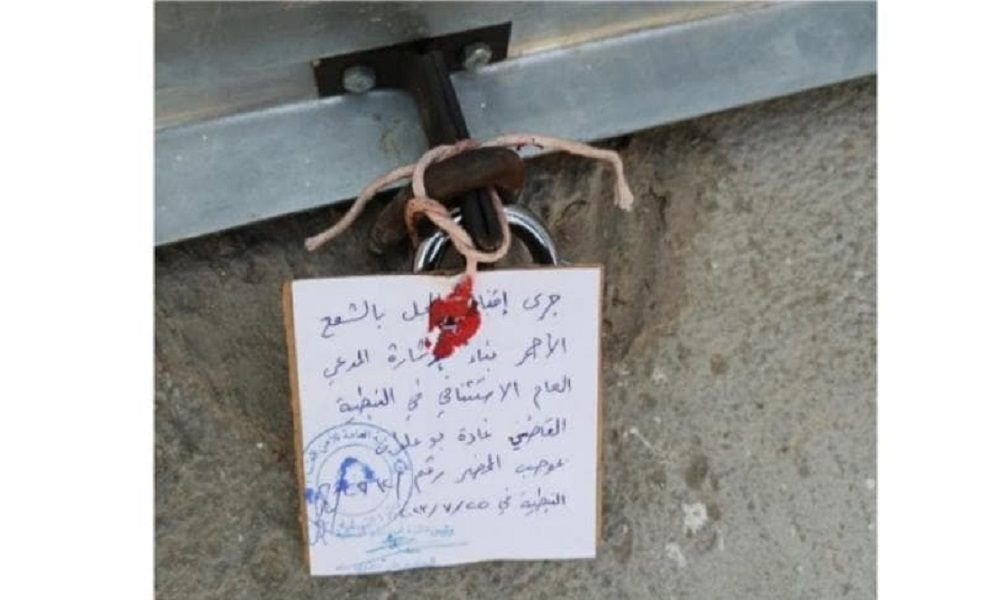 جرى إقفال المحل بالشمع
الأحمر بناء لإشارة المدعي
العام الاستئنافي في النبطية
القاضي غادة بو علوان
بموجب المحضر رقم
النبطية في